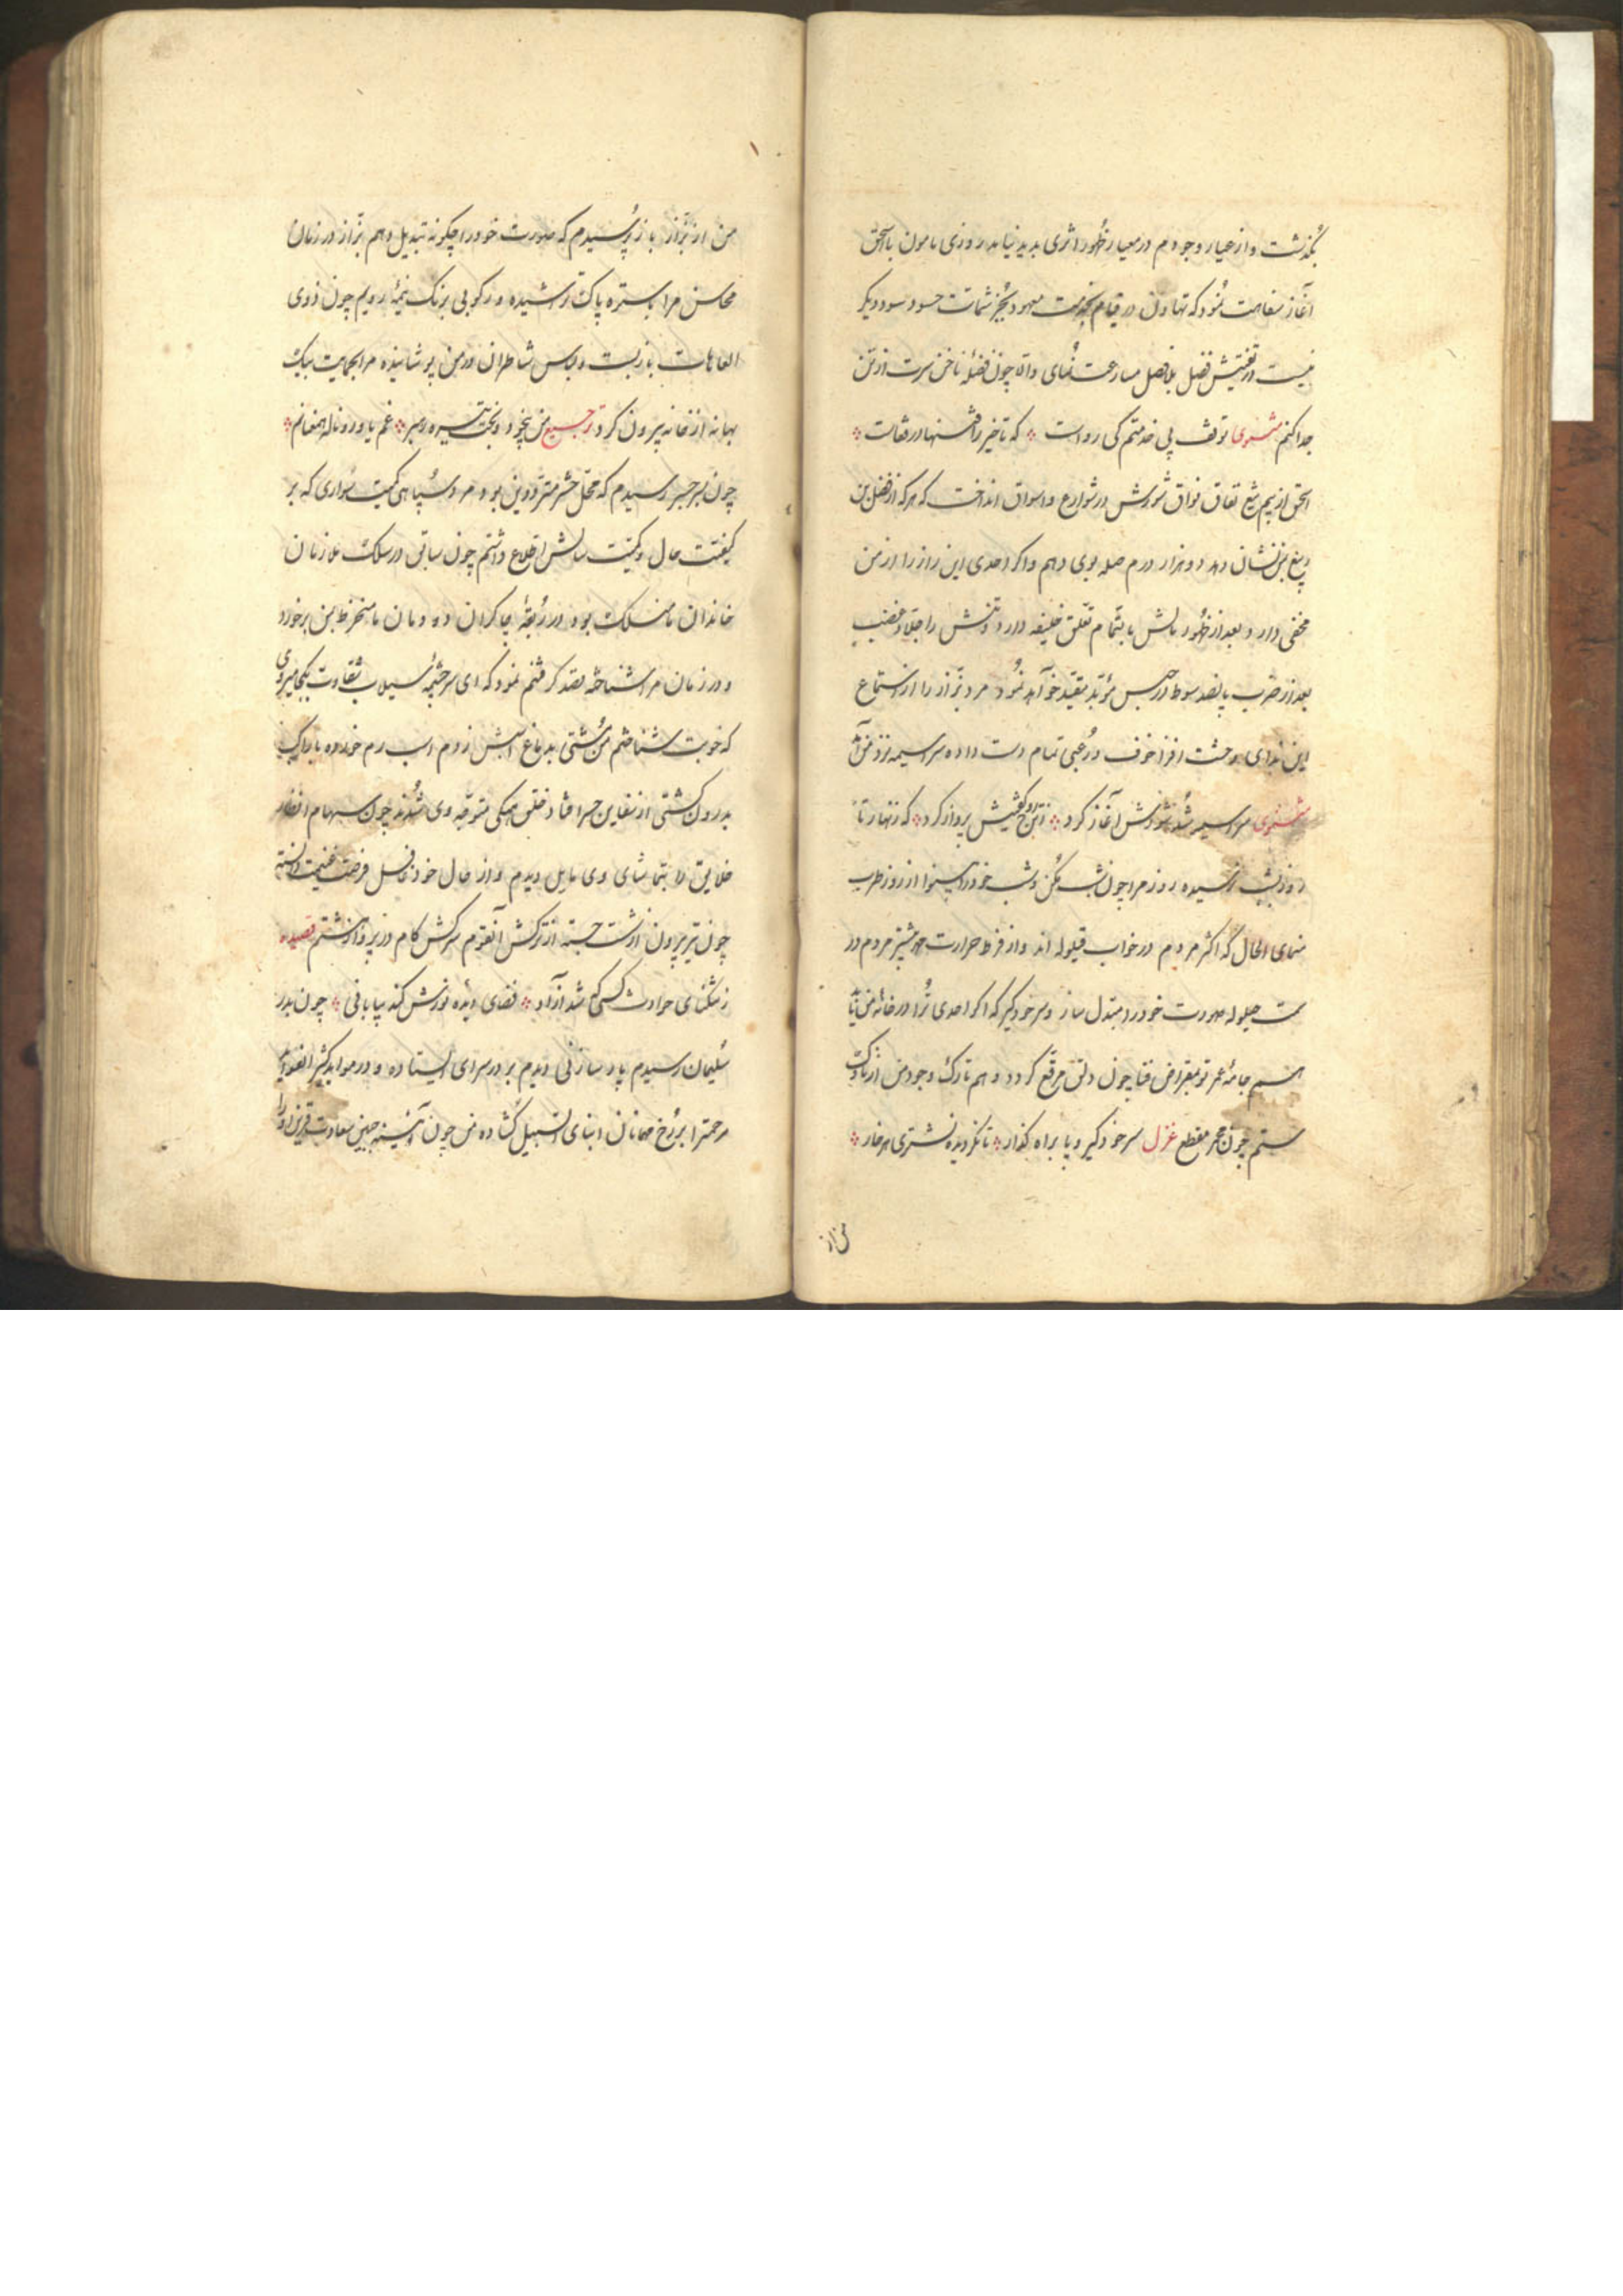 بگذشت و از عیار وجودم در معیار ظهور اثری پدید نیامد روزی مامون با اسحق
آغاز سفاهت نمود که تهاون در قیام بخدمت معهود بجز شماتت حسود سود دیگر
نیست در تفتیش فضل بلافصل مسارعت نمای والا چون فضله ناخن سرت از تن
جدا کنم مثنوی توقف پی خدمتم کی رواست که تاخیر را فتنها در قفاست
اسحق از بیم تیغ نفاق شورش در شوارع و اسواق انداخت که هر که از فضل بن
ربیع بمن نشان دهد دو هزار درم صله بوی دهم و اگر احدی این راز را از من
مخفی دارد بعد از ظهور مالش بالتمام تعلق خلیفه دارد و تنش را جلاد غضب
بعد از ضرب پانصد سوط در حبس مؤبد مقید خواهد نمود مرد بزاز را از استماع
این ندای وحشت افزا خوف و رعبی تمام دست داده سراسیمه نزد من آمد
مثنوی سراسیمه شد شورش آغاز کرد پرواز کرد که زنهار تا
روزت بشب نرسیده روز مرا چون شب مکن و شب خود را از روز طرب
منمای الحال که اکثر مردم در خواب قیلوله اند و از فرط حرارت بیشتر مردم در
حیلوله صورت خود را مبتدل ساز و سر خود گیر که اگر احدی ترا در خانه من
جامه عمر تو بمقراض فنا چون دلق مرقع گردد و هم تارک وجود من از ناوک
ستم چون مجمر مقطع غزل سر خود گیر و پا براه گذار تا نگردیده نشتری هر خار
من از
من از بزاز باز پرسیدم که صورت خود را چگونه تبدیل دهم بزاز در زمان
محاسن مرا باستره پاک تراشیده و رکوبی بر یک نیمه رویم چون ذوی
العاهات باز بست و لباس شاطران در من پوشانیده مرا بحمایت بیک
بهانه از خانه بیرون کرد ترجیع من بیخود و بخت تیره رهبر غم یاور و ناله همعنانم
چون بسر جسر رسیدم که محل حشر مترددین بود مرد سپاهی کمیت سواری که بر
کیفیت حال و کمیت سالش اطلاع داشتم چون سابق در سلک ملازمان
خاندان ما منسلک بود و در ربقه چاکران دودمان ما منخرط بمن برخورد
و در زمان مرا شناخته قصد گرفتنم نمود که ای سرچشمه سیلاب شقاوت بکجا میروی
که خوبت شناختم من مشتی بدماغ اسبش زدم اسب رم خورده با راکب
بدرون کشتی از سفاین جسر افتاد خلق همگی متوجه وی شدند چون سهام انظار
خلایق را بتماشای وی مایل دیدم و از حال خود غافل فرصت غنیمت دانسته
چون تیر پرون از شست جسته از ترکش آنقوم سرکش گام در پرواز گشتم قصیده
ز تنگنای حوادث کسی که شد آزاد فضای دیده مورش کند بیابانی چون بدر
سلیمان رسیدم پارسا زنی دیدم بر در سرای ایستاده و در موائد کثیر الفوائد
مرحمت را بر رخ مهمانان ابنای السبیل گشاده من چون آئینه جبین سعادت قرین او را